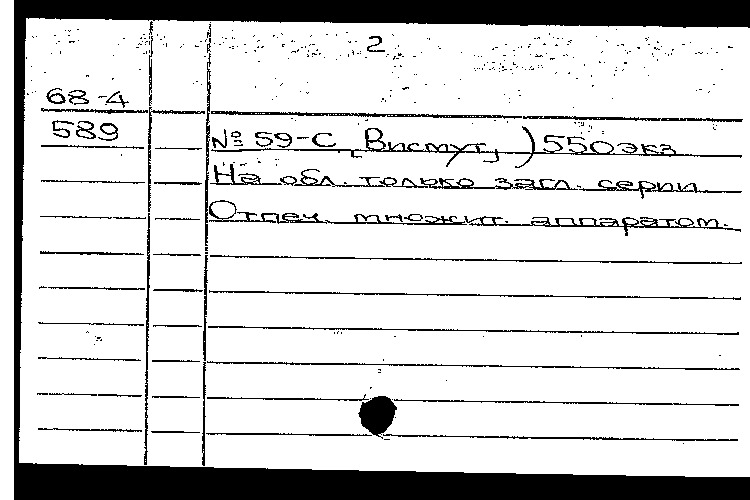 2
68-4
589
№ 59-С [Висмут] ) 550 экз
На обл. только загл. серии.
Отпеч. множит. аппаратом.